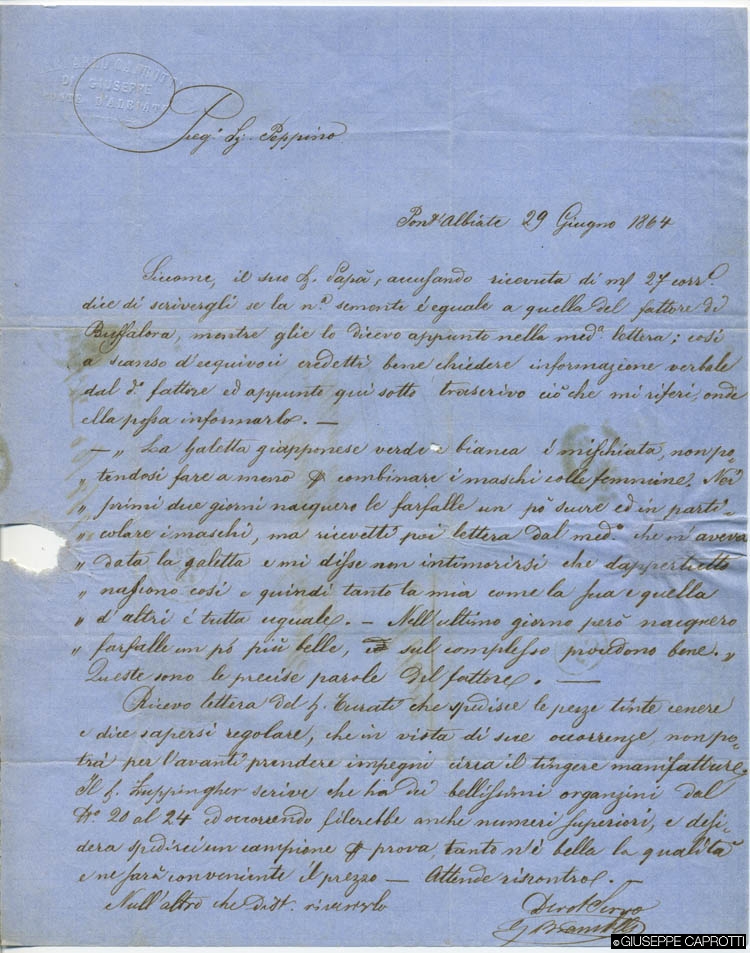 DI GIUSEPPE
Preg.º Sig. Peppino
Pont'Albiate 29 Giugno 1864
Siccome, il suo S. Papà, accusando ricevuta di m/ 27 corr.e
dice di scrivergli se la n.a semente é eguale a quella del fattore di
Buffalora, mentre glie lo dicevo appunto nella med.a lettera; così
a scanso d'equivoci credetti bene chiedere informazione verbale
dal d.o fattore ed appunto qui sotto trascrivo ciò che mi riferì, onde
ella possa informarlo. —
— „ La Galetta giapponese verde e bianca é mischiata, non po-
„ tendosi fare a meno di combinare i maschi colle femmine. Nei
„ primi due giorni nacquero le farfalle un pò scure ed in parti-
„ colare i maschi, ma ricevetti poi lettera dal med.o che m'aveva
„ data la galetta e mi disse non intimorirsi che dappertutto
„ nascono così e quindi tanto la mia come la sua e quella
„ d'altri é tutta uguale. — Nell'ultimo giorno però nacquero
„ farfalle un pó più belle, sul complesso procedono bene. „
Queste sono le precise parole del fattore. —
Ricevo lettera del S. Turati che spedisce le pezze tinte cenere
e dice sapersi regolare, che in vista di sue occorrenze, non po-
trà per l'avanti prendere impegni circa il tingere manifatture.
Il S. Zuppingher scrive che ha dei bellissimi organzini dal
N.o 20 al 24 ed occorrendo filerebbe anche numeri superiori, e desi-
dera spedirci un campione di prova, tanto n'é bella la qualità
e ne farà conveniente il prezzo — Attende riscontro. —
Null'altro che dist. riverirlo
Devot Servo
© GIUSEPPE CAPROTTI